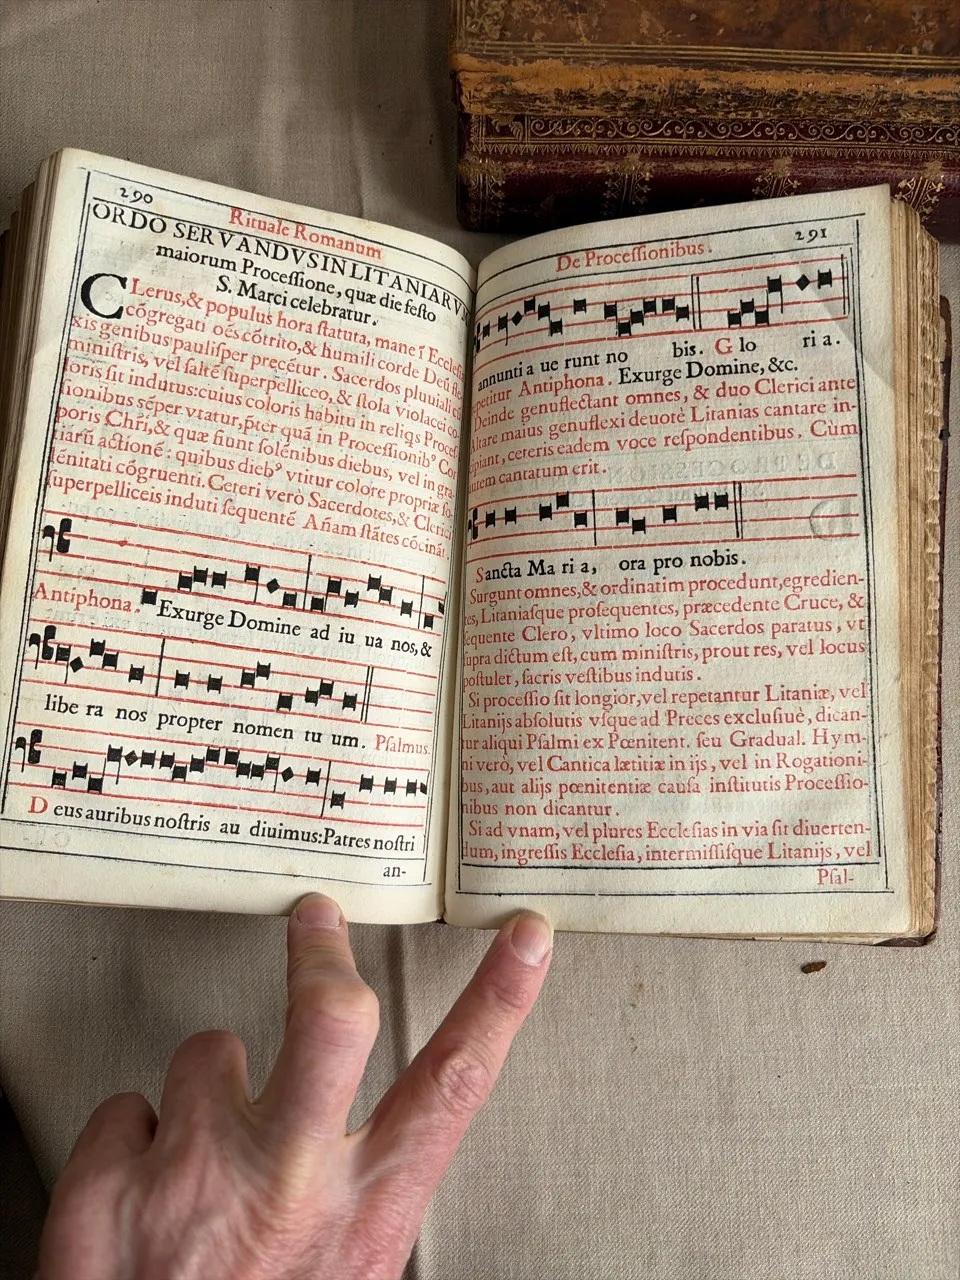 290
Rituale Romanum
ORDO SERVANDVS IN LITANIARVM
maiorum Processione, quæ die festo
S. Marci celebratur.
CLerus, & populus hora statuta, mane ī Ecclesia
cōgregati oēs cōtrito, & humili corde Deū
xis genibus paulisper precētur. Sacerdos pluuiali cū
ministris, vel saltē superpelliceo, & stola violacei co-
loris sit indutus: cuius coloris habitu in reliqs Proces-
sionibus sēper vtatur, p̄ter quā in Processionibꝰ Cor-
poris Chr̄i, & quæ fiunt solēnibus diebus, vel in gra-
tiarū actionē: quibus diebꝰ vtitur colore propriæ so-
lēnitati cōgruenti. Ceteri verò Sacerdotes, & Clerici
superpelliceis induti sequentē Añam stātes cōcināt.
Antiphona. Exurge Domine ad iu ua nos, &
libe ra nos propter nomen tu um. Psalmus.
D eus auribus nostris au diuimus: Patres nostri
an-
291
De Processionibus.
annunti a ue runt no bis. G lo ri a.
repetitur Antiphona. Exurge Domine, &c.
Deinde genuflectant omnes, & duo Clerici ante
Altare maius genuflexi deuotè Litanias cantare in-
cipiant, ceteris eadem voce respondentibus. Cùm
autem cantatum erit.
Sancta Ma ri a, ora pro nobis.
Surgunt omnes, & ordinatim procedunt, egredien-
tes, Litaniasque prosequentes, præcedente Cruce, &
sequente Clero, vltimo loco Sacerdos paratus, vt
supra dictum est, cum ministris, prout res, vel locus
postulet, sacris vestibus indutis.
Si processio sit longior, vel repetantur Litaniæ, vel
Litanijs absolutis vsque ad Preces exclusiuè, dican-
tur aliqui Psalmi ex Pœnitent. seu Gradual. Hym-
ni verò, vel Cantica lætitiæ in ijs, vel in Rogationi-
bus, aut alijs pœnitentiæ causa institutis Processio-
nibus non dicantur.
Si ad vnam, vel plures Ecclesias in via sit diuerten-
dum, ingressis Ecclesia, intermissisque Litanijs, vel
Psal-